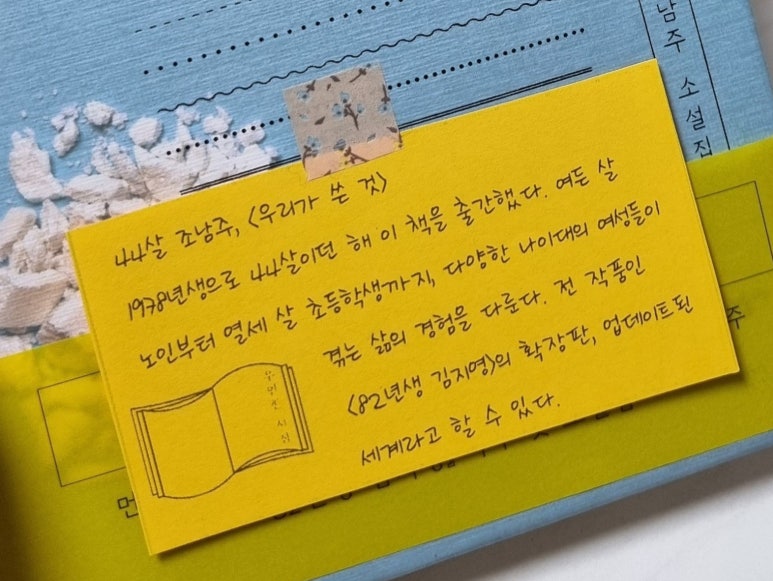 44살 조남주, <우리가 쓴 것>
1978년생으로 44살이던 해 이 책을 출간했다. 여든 살
노인부터 열세 살 초등학생까지, 다양한 나이대의 여성들이
겪는 삶의 경험을 다룬다. 전 작품인
<82년생 김지영>의 확장판, 업데이트된
세계라고 할 수 있다.
우연한 시점
남주 소설집
주